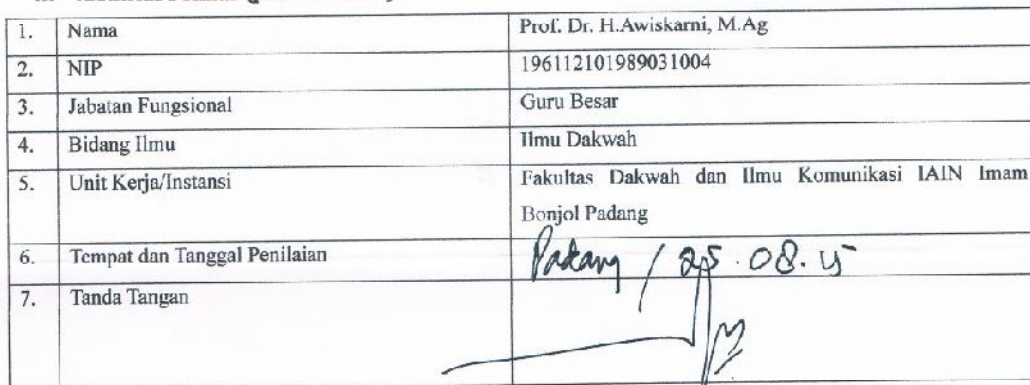 1. Nama Prof. Dr. H.Awiskarni, M.Ag
2. NIP 196112101989031004
3. Jabatan Fungsional Guru Besar
4. Bidang Ilmu Ilmu Dakwah
5. Unit Kerja/Instansi Fakultas Dakwah dan Ilmu Komunikasi IAIN Imam
Bonjol Padang
6. Tempat dan Tanggal Penilaian Padang / 25.08.15
7. Tanda Tangan